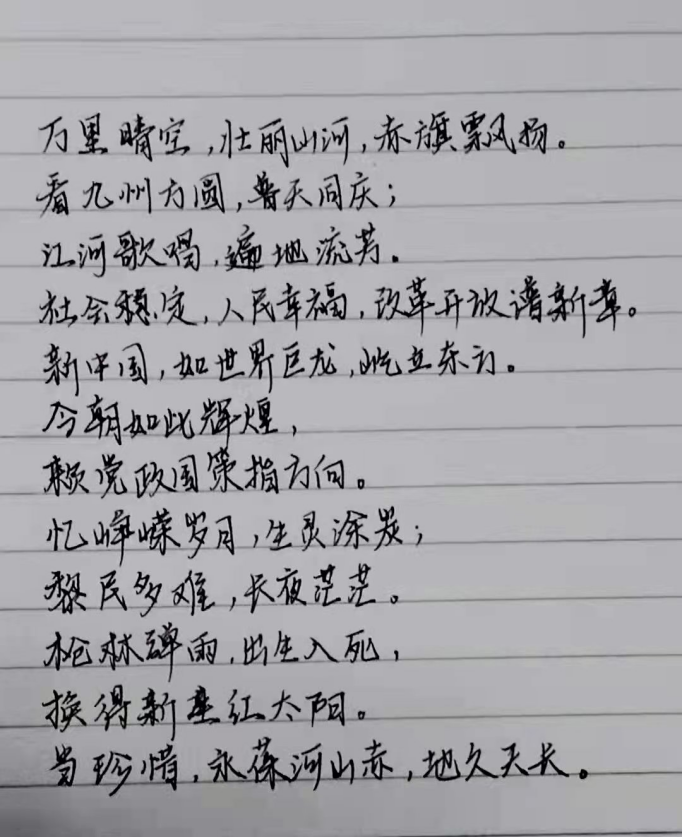 万里晴空,壮丽山河,赤旗飘风扬。
看九州方圆,普天同庆;
江河歌唱,遍地流芳。
社会稳定,人民幸福,改革开放谱新章。
新中国,如世界巨龙,屹立东方。
今朝如此辉煌,
赖党政国策指方向。
忆峥嵘岁月,生灵涂炭;
黎民多难,长夜茫茫。
枪林弹雨,出生入死,
换得新生红太阳。
当珍惜,永葆河山赤,地久天长。